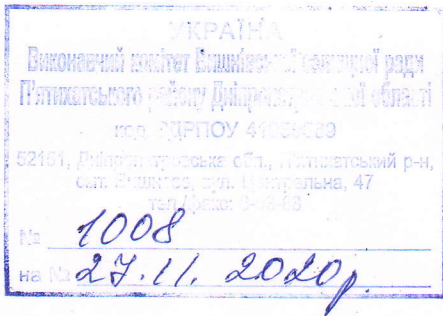 УКРАЇНА
Виконавчий комітет Вишнівської селищної ради
П'ятихатського району Дніпропетровської області
код ЄДРПОУ
52161, Дніпропетровська обл., П'ятихатський р-н,
смт. Вишневе, вул. Центральна, 47
тел./факс:
№ 1008
на № 27.11.2020р.